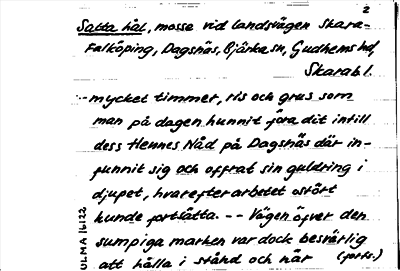 2
Satta hål, mosse vid landsvägen Skara-
Falköping, Dagsnäs, Bjärka sn, Gudhems hd,
Skarab l.
--mycket timmer, ris och grus som
man på dagen hunnit föra dit intill
dess Hennes Nåd på Dagsnäs där in-
funnit sig och offrat sin guldring i
djupet, hvarefter arbetet ostört
kunde fortsätta. -- Vägen öfver den
sumpiga marken var dock besvärlig
att hålla i stånd och när (forts.)
ULMA 16122